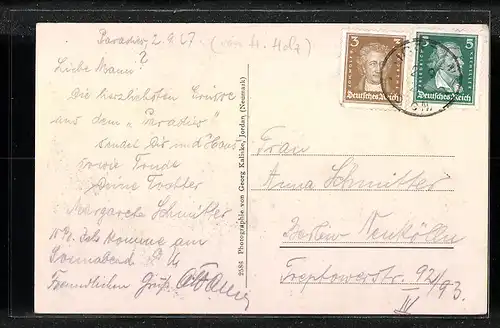 Paradies, 2.9.27 (von H. Holz)
?
Liebe Mama!
Die herzlichsten Grüsse
aus dem „Paradies"
sendet Dir und Haus
sowie Trude
Deine Tochter
Margarete Schmitter
Ich komme am
Sonnabend
Freundlichen Gruß
2584 Photographie von Georg Kalicke, Jordan (Neumark)
3 3
Deutsches Reich
5 5
Deutsches Reich
Frau
Anna Schmitter
Berlin Neukölln
Treptowerstr. 92/93.
IV